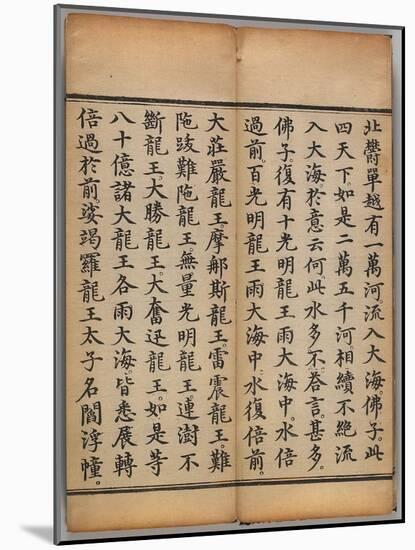 北欝單越有一萬河。流入大海。佛子。此
四天下如是二萬五千河。相續不絶流
入大海。於意云何。此水多不。荅言。甚多。
佛子。復有十光明龍王雨大海中。水倍
過前。百光明龍王雨大海中。水復倍前。
大莊嚴龍王。摩郍斯龍王。雷震龍王。難
陁跋難陁龍王。無量光明龍王。連澍不
斷龍王。大勝龍王。大奮迅龍王。如是等
八十億諸大龍王。各雨大海。皆悉展轉
倍過於前。娑竭羅龍王太子名閻浮幢。